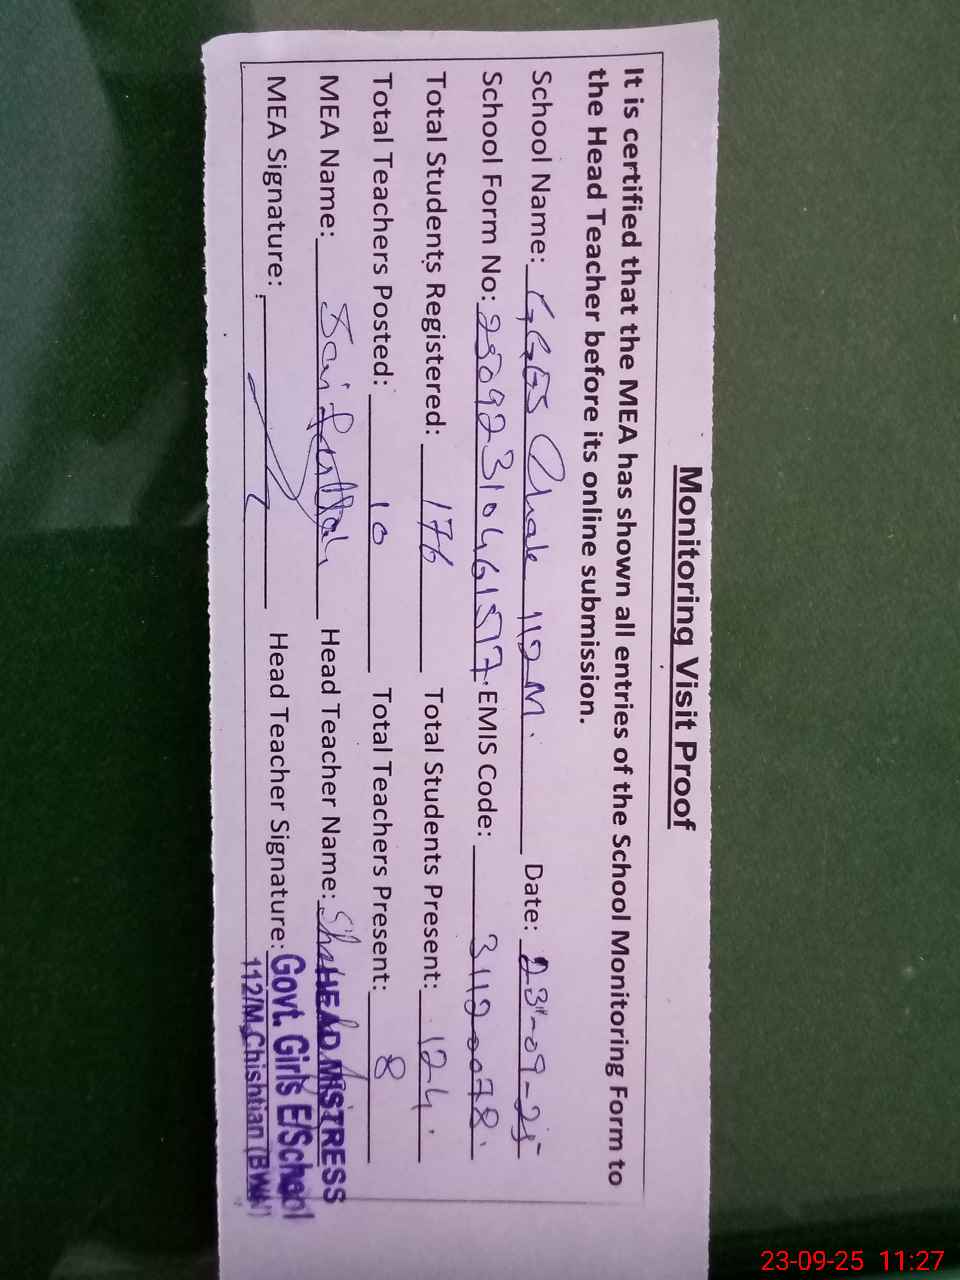 Monitoring Visit Proof
It is certified that the MEA has shown all entries of the School Monitoring Form to
the Head Teacher before its online submission.
School Name: GGES Chak 112 M. Date: 23-09-25
School Form No: 25092310461517. EMIS Code: 31120078.
Total Students Registered: 176 Total Students Present: 124.
Total Teachers Posted: 10 Total Teachers Present: 8
MEA Name: Saifullah Head Teacher Name:
HEAD MISTRESS
MEA Signature: Head Teacher Signature:
Govt. Girls E/School
112/M Chishtian (BWN)
23-09-25 11:27